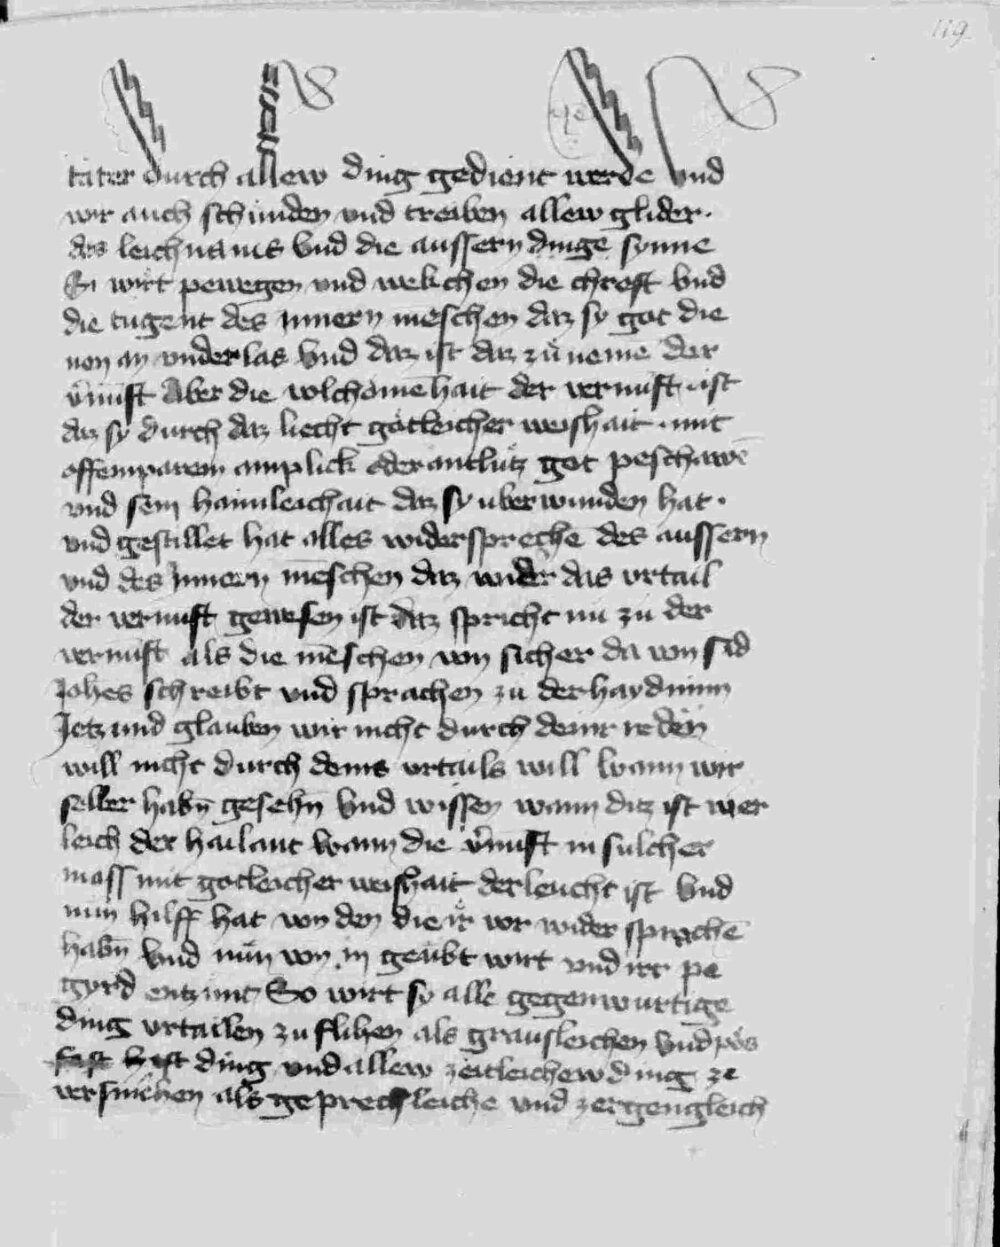 119
tater durch allew ding gedient werde vnd
wir auch schunden vnd treiben allew glider ·
des leichnams Vnd die aussern dinge synne
Si wirt pewegen vnd wekchen die chreft Vnd
die tugent des innern meschen daz sy got die
nen an vnderlas Vnd daz ist daz zů neme der
v̄nuft Aber die volchomēhait der vernuft · ist
daz sy durch daz liecht gotleicher weishait · mit
offemparem anplick oder antlutz got peschawē
vnd sein haimleichait daz sy uberwunden hat ·
vnd gestillet hat alles widersprechē des aussern
vnd des Jnnern mēschen daz wider das vrtail
der vernuft gewesen ist Daz spricht nu zu der
vernūft als die mēschen von sicher da von sād
Johes schreibt vnd sprachen zu der haydninn
Jetzund glauben wir nicht durch deinr reden
will nicht durch deins vrtails will Wann wir
selber habn̄ gesehn̄ Vnd wissen wann ditz ist wer
leich der hailant Wann die v̄nuft in sulcher
mass mit gotleicher weishait derleucht ist Vnd
nun hilff hat von den die ir vor wider sprachē
habn̄ Vnd nůn von in geubt wirt vnd irr pe
gyrd entzunt So wirt sy alle gegenwurtige
ding vrtailen zu flihen als grausleichen Vnd pös
ding vnd allew zeitleichew ding ze
versmehen als geprechleiche vnd zergengleich